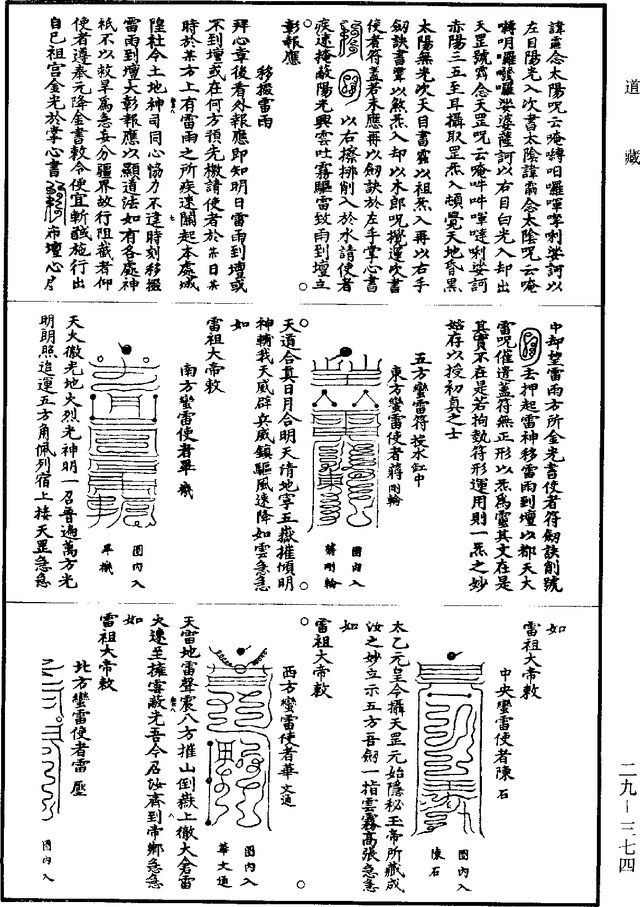 道藏
諱處念太陽呪云唵嚩呬囉嗶嗱唎娑訶以
左目陽光入次書太陰諱處念太陰呪云唵
嚩明囉囉娑婆薩訶以右目白光入却出
天罡號霧念天罡呪云唵吽吽嗶噠唎娑訶
赤陽三五至耳攝取罡炁入頓覺天地昏黑
太陽無光次天目書霧以祖炁入再以右手
劔訣書雷以煞炁入却以木郎呪攪邊吹書
使者符蓋若未應再以劔訣於左手掌心書
以右擦排削入於水請使者
疾速掩蔽陽光興雲吐霧驅雷致雨到壇立
彰報應
移撥雷雨
拜心章後看外報應即知明日雷雨到壇或
不到壇或在何方預先檄請使者於某日某
時於某方上有雷雨之所疾速關起本處城
隍社令土地神司同心恊力不違時刻移撥
雷雨到壇大彰報應以顯道法如有各處神
祇不以救旱為急妄分疆界故行阻截者仰
使者遵奉元降金書敕令便宜斬馘施行出
自己祖宮金光於掌心書布壇心
中却望雷雨方所金光書使者符劔訣削號
去押起雷神移雷雨到壇以都天大
雷呪催遣蓋符無正形以炁為靈其文在是
其實不在是若拘執符形運用則一炁之妙
姑存以授初真之士
五方蠻雷符投水缸中
東方蠻雷使者蔣剛輪
圈內入
蔣剛輪
天道合真日月合明天清地寧五嶽摧傾明
神輔我天威辟兵威鎮驅風速降如雲急急
如
雷祖大帝敕
南方蠻雷使者畢機
圈內入
畢機
天火徹光地火烈光神明一召普遍萬方光
明朗照追運五方角佩列宿上接天罡急急
如
雷祖大帝敕
中央蠻雷使者陳石
圈內入
陳石
太乙元皇今攝天罡元始隱秘玉帝所藏成
汝之妙立示五方吾劔一指雲霧高張急急
如
雷祖大帝敕
西方蠻雷使者華文通
圈內入
華文通
天雷地雷聲震八方摧山倒嶽上徹大倉雷
火速至擁雲蔽光吾今召汝齊到帝鄉急急
如
雷祖大帝敕
北方蠻雷使者雷壓
圈內入
二九—三七四